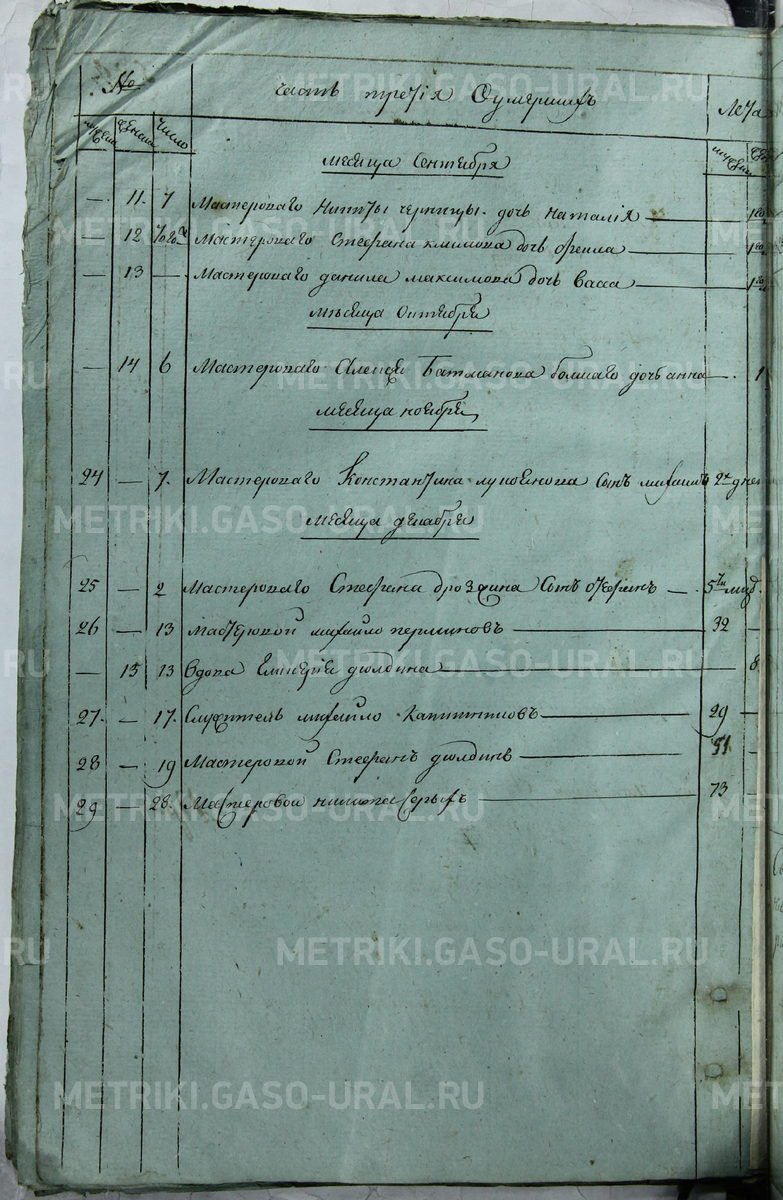 № Часть третiя Оумершихъ Лета
мужеска женска число мужеска
месяца Сентября
— 11. 7 Мастероваго Никиты черницы. дочь наталiя —
— 12 Мастероваго Стефана климова дочь —
— 13 — Мастероваго данила максимова дочь васса —
мѣсяца Октября
— 14 6 Мастероваго Алексея Батманова большаго дочь анна — 1
месяца ноября
24 — 7. Мастероваго Константина сынъ михаилъ 2х дней
месяца декабря
25 — 2 Мастероваго Стефана дроздина сынъ —
26 — 13 мастеровой михайло перминовъ — 32 —
— 15 13 вдова дюлдина — 8
27. — 17. Служитель михайло Капитоновъ — 29 —
28 — 19 Мастеровой Стефанъ дюлдинъ — 51 —
29 — 28. Мастеровой никита Серыхъ — 73 —
METRIKI.GASO-URAL.RU